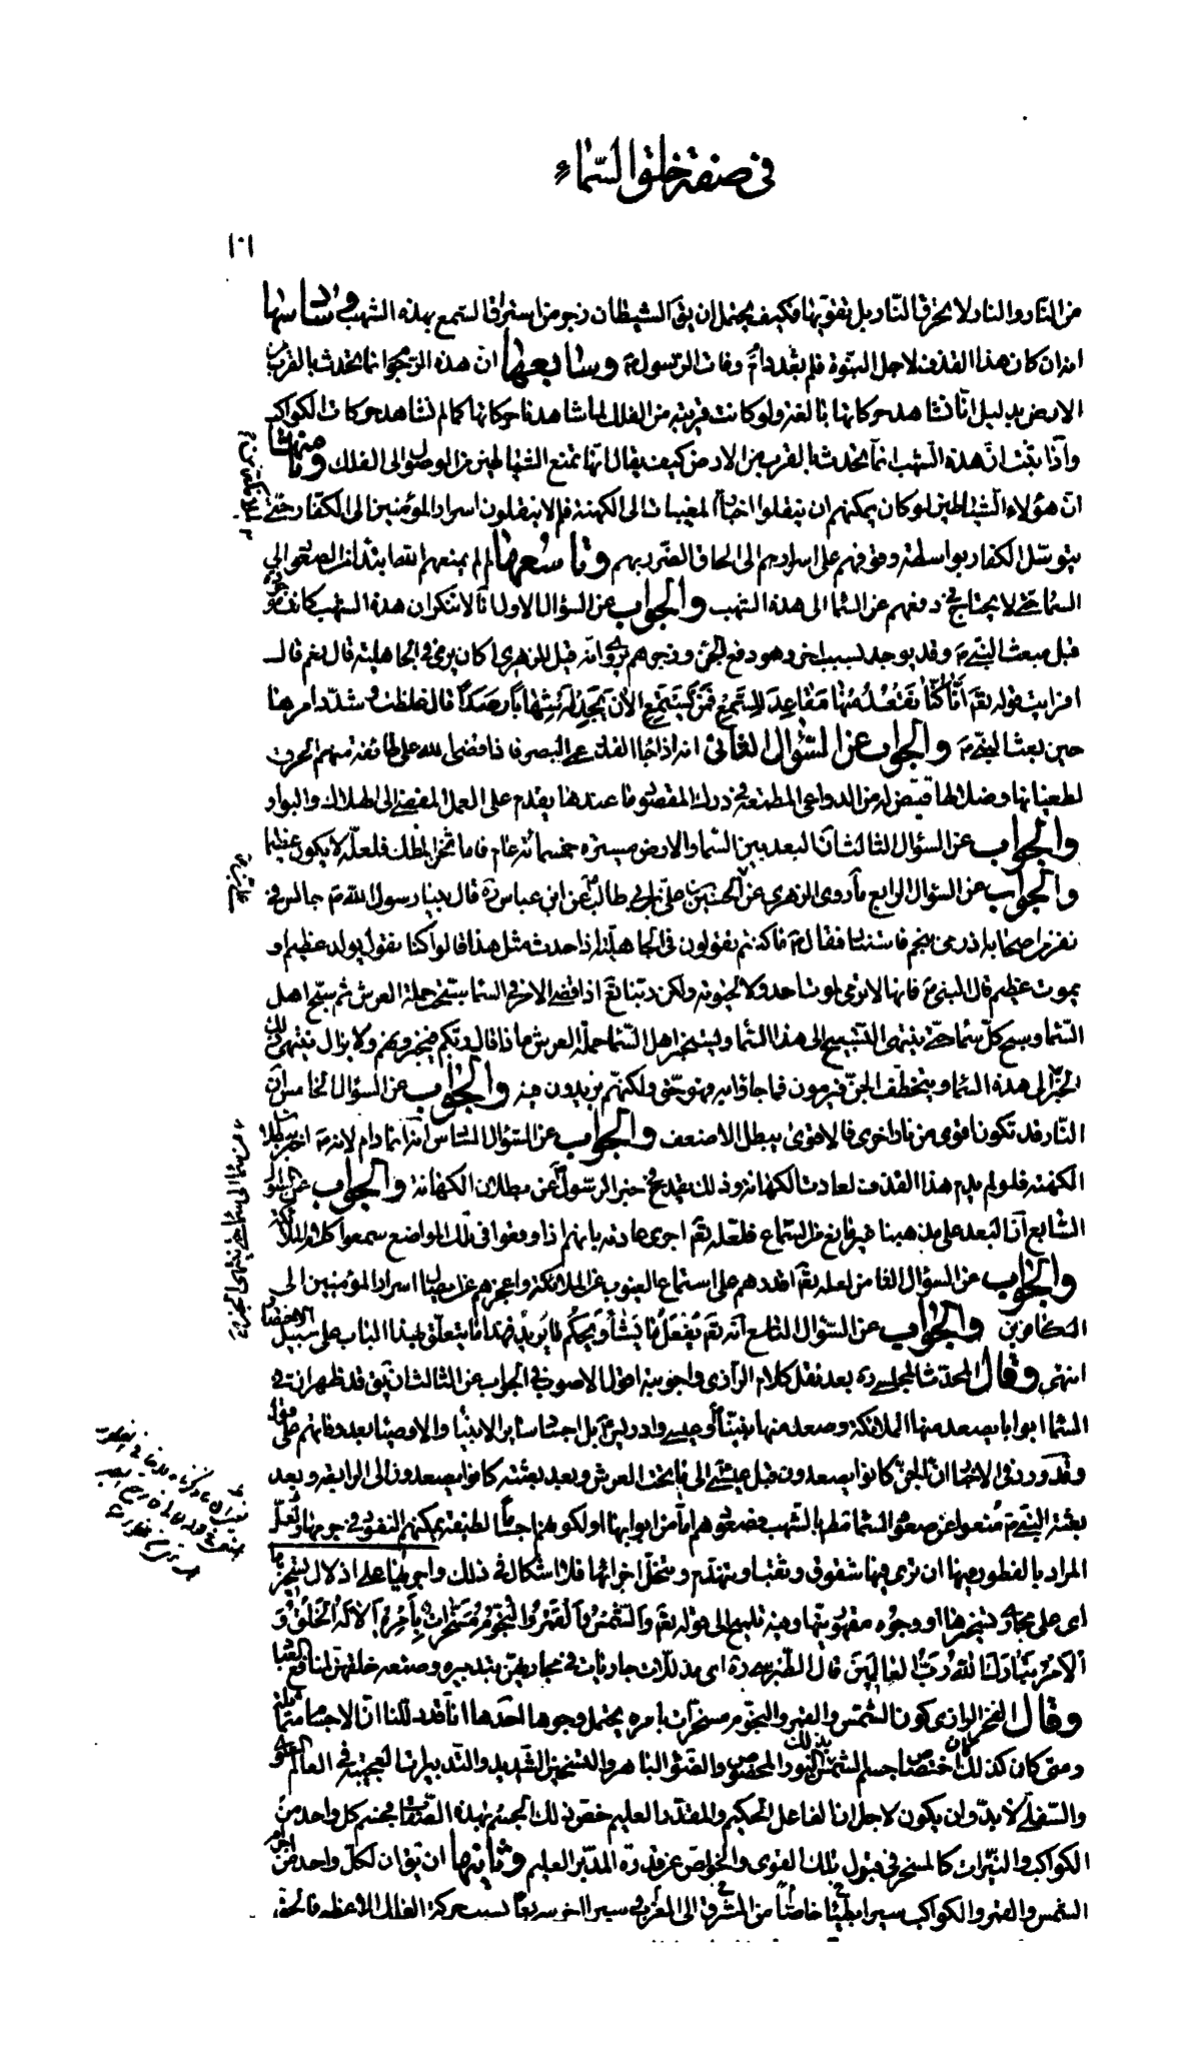 في صفة خلق السماء
١٠١
من النّار والنار لا تحرق النّار بل تقويّها فكيف يحتمل ان يق الشيطان زجر من استراق السّمع بهذه الشهب وسادسها
انه ان كان هذا القذف لاجل النبّوة فلم بقد دام وفات الرّسول ص وسابعها انّ هذه الرّجوم انما تحدث بالقرب من
الارض بدليل انّا نشاهد حركاتها بالغة ولو كانت قريبة من الفلك لما شاهدنا حركاتها كما لم نشاهد حركات الكواكب
واذا ثبت انّ هذه الشهب انّما تحدث بالقرب من الارض كيف يقال انّها تمنع الشياطين من الوصول الى الفلك وثامنها
انّ هؤلاء الشياطين لو كان يمكنهم ان ينقلوا اخبار المغيبات الى الكهنة فلم لا ينقلون اسرار المؤمنين الى الكفّار حتّى
يتوسّل الكفار بواسطة وقوفهم على اسرارهم الى الحاق الضّرر بهم وتاسعها لم لم يمنعهم الله ابتداء من الصعود الى
السّماء حتّى لا يحتاج في دفعهم عن السّماء الى هذه الشهب والجواب عن السؤال الاول انّا لا ننكر ان هذه الشهب كانت موجودة
قبل مبعث النبيّ ص وقد يوجد لسبب اخر وهو دفع الجنّ وزجرهم يروى انّه قيل للزهري اكان يرمى في الجاهلية قال نعم قال
افرايت قوله تعم أَنّا كُنّا نَقْعُدُ مِنْها مَقاعِدَ لِلسَّمْعِ فَمَنْ يَسْتَمِعِ الآنَ يَجِدْ لَهُ شِهاباً رَصَداً قال غلظت وشدّد امرها
حين بعث النبيّ ص والجواب عن السّؤال الثاني انه اذا جاء القدر عمى البصر فاذا قضى الله على طائفة منهم الحرق
لطغيانها وضلالتها قيّض له من الدواعي المطمعة في درك المقصود ما عندها يقدم على العمل المفضي الى الهلاك والبوار
والجواب عن السؤال الثالث انّ البعد بين السّماء والارض مسيرة خمسمائة عام فاما ثخن الفلك فلعلّه لا يكون عظيما
والجواب عن السؤال الرّابع ما روى الزهري عن علي بن الحسين بن عليّ بن ابي طالب عن ابن عباس ره قال بينا رسول الله ص جالس في
نفر من اصحابه اذ رمى بنجم فاستنار فقال ص ما كنتم تقولون في الجاهليّة اذا حدث مثل هذا قالوا كنّا نقول يولد عظيم او
يموت عظيم قال النبي ص فانها لا ترمى لموت احد ولا لحيوته ولكن ربّنا تعم اذا قضى الامر في السّماء سبّحت حملة العرش ثم سبّح اهل
السّماء وسبّح كلّ سماء حتّى ينتهي التسبيح الى هذا السّماء ويستخبر اهل السّماء حملة العرش ماذا قال ربّكم فيخبرونهم ولا يزال ينتهي ذلك
الخبر الى هذه السّماء ويتخطّف الجنّ فيرمون فما جاؤا به فهو حقّ ولكنّهم يزيدون فيه والجواب عن السؤال الخامس انّ
النّار قد تكون اقوى من نار اخرى فالاقوى يبطل الاضعف والجواب عن السّؤال السّادس انّه انما دام لانّه ص اخبر ببطلان
الكهنة فلو لم يدم هذا القذف لعادت الكهانة وذلك يقدح في خبر الرسول ص عن بطلان الكهانة والجواب عن السؤال
السّابع انّ البعد على مذهبنا غير مانع من السّماع فلعلّه تعم اجرى عادته بانهم اذا وقفوا في تلك المواضع سمعوا كلام الملائكة
والجواب عن السؤال الثامن لعله تعم اقدرهم على استماع الغيوب عن الملائكة واعجزهم عن ايصال اسرار المؤمنين الى
الكافرين والجواب عن السّؤال التاسع انّه تعم يفعل ما يشاء ويحكم ما يريد فهذا ما يتعلّق بهذا الباب على سبيل الاختصار
انتهى وقال المحدّث المجلسي ره بعد نقل كلام الرّازي واجوبته اقول الاصوب في الجواب عن الثالث ان يق قد ظهر ان في
السّماء ابوابا يصعد منها الملائكة وصعد منها نبيّنا ص وعيسى وادريس ع بل اجساد سائر الانبياء والاوصياء بعد وفاتهم على قول
وقد ورد في الاخبار ان الجنّ كانوا يصعدون قبل عيسى ع الى ما تحت العرش وبعد بعثته كانوا يصعدون الى الرّابعة وبعد
بعثة النبيّ ص مُنعوا عن صعود السّماء مطلقا بالشهب فصعودهم امّا من ابوابها او لكونهم اجساما لطيفة يمكنهم النفوذ في جرمها ولعلّ
المراد بالفطور فيها ان ترى فيها شقوق وثقبا وتنهدم وتنحلّ اجزائها فلا اشكال في ذلك
اى على مجاز تسخيرها او وجوه مقهوريّتها وفيه تلميح الى قوله تعم وَالشَّمْسَ وَالْقَمَرَ وَالنُّجُومَ مُسَخَّراتٍ بِأَمْرِهِ أَلا لَهُ الْخَلْقُ وَ
الأَمْرُ تَبارَكَ اللهُ رَبُّ الْعالَمِينَ قال الطّبرسي ره اى مذلّلات جاريات في مجاريهنّ بتدبيره وصنعه خلقهنّ لمنافع العباد
وقال الفخر الرازي كون الشّمس والقمر والنّجوم مسخّرات بامره يحتمل وجوها احدها انّا قد دللنا انّ الاجسام متماثلة
ومتى كان كذلك كان اختصاص جسم الشمس بذلك النور المخصوص والضّوء الباهر والتسخين الشّديد والتّدبيرات العجيبة في العالم العلوي و
والسّفلي لا بدّ وان يكون لاجل ان الفاعل الحكيم والمقدّر العليم خصّ ذلك الجسم بهذه الصّفات فجسم كل واحد من
الكواكب والنيّرات كالمسخر في قبول تلك القوى والخواصّ عن قدرة المدبّر العليم وثانيها ان يق ان لكلّ واحد من اجرام
الشمس والقمر والكواكب سيرا بطيئا خاصّا من المغرب الى المشرق سيرا اخر سريعا بسبب حركة الفلك الاعظم فالحق